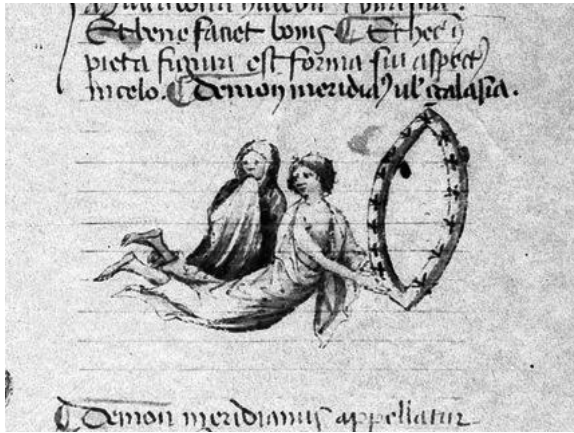 Et bene faciet bonis ⸿ Et hec
picta figura est forma sui aspect
in celo. ⸿ Demon meridian ul galaxia.
⸿ Demon meridianus appellatur